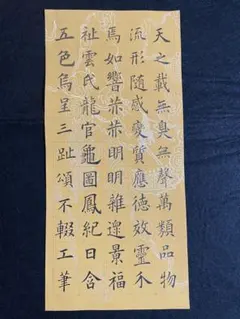 天之載無臭無聲萬類品物
流形隨感變質應德效靈不
焉如響榮榮明明雜遝景福
祉雲氏龍官龜圖鳳紀日含
五色烏呈三趾頌不輟工筆